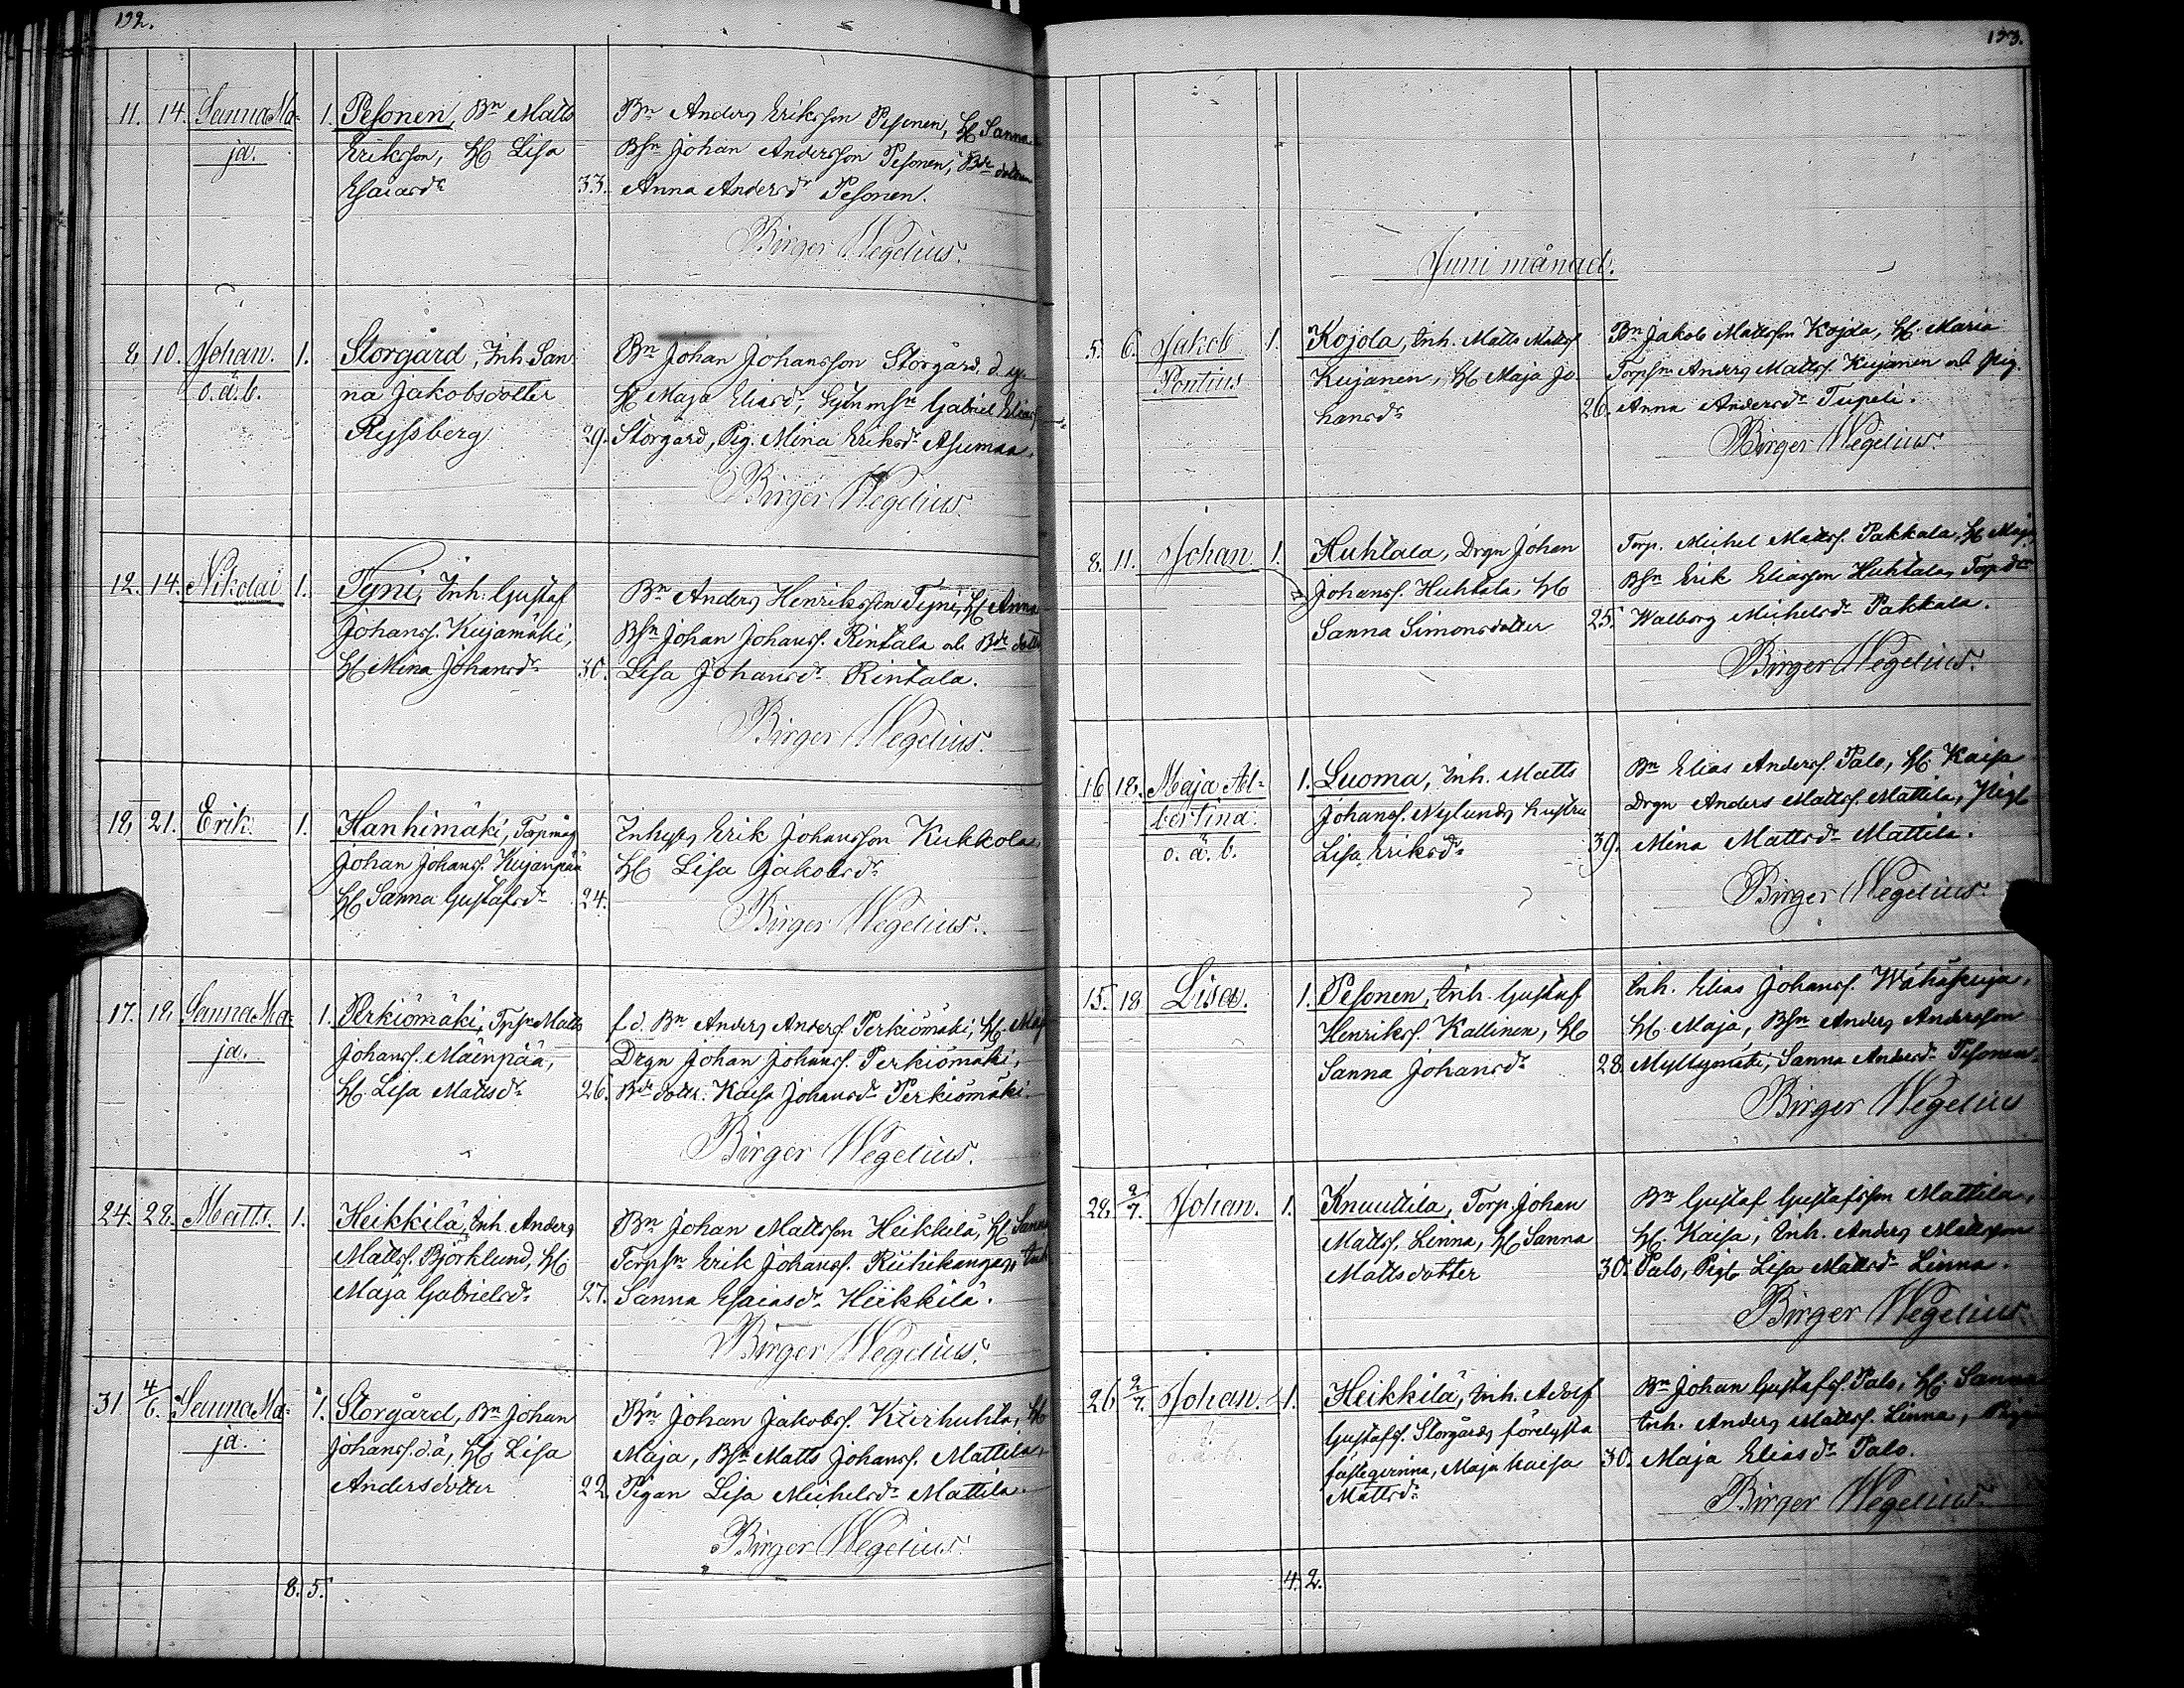 192.
11. 14. Sanna Ma- 1. Pesonen, Bn Matts
ja. Eriksson, H. Lisa
Esaiasdr 33.
Bn Anders Eriksson Pesonen, H. Sanna
Bsn Johan Andersson Pesonen, Bdr dottern
Anna Andersdr Pesonen.
Birger Wegelius.
8, 10. Johan. 1. Storgård, Inh. San
o. ä. b. na Jakobsdotter
Ryssberg 29.
Bn Johan Johansson Storgård, d. y.
H. Maja Eliasdr, Gabriel Eliass.
Storgård, Pig. Mina Eriksdr Asumaa.
Birger Wegelius.
12. 14. Nikolai 1. Tyni, Inh. Gustaf
Johanss. Kujamäki,
H. Mina Johansdr 30.
Bn Anders Henriksson Tyni, H. Anna
Bsn Johan Johanss. Rintala och Bdr dottr
Lisa Johansdr Rintala.
Birger Wegelius.
18, 21. Erik. 1. Hanhimäki, Torpmåg
Johan Johanss. Kujanpää
H. Sanna Gustafsdr 24.
Inhyss Erik Johansson Kukkola,
H. Lisa Jakobsdr
Birger Wegelius.
17. 18, Sanna Ma- 1. Perkiömäki, Tpsn Matts
ja. Johanss. Mäenpää,
H. Lisa Mattsdr 26.
f. d. Bn Anders Anderss. Perkiömäki, H. Maja
Drgn Johan Johanss. Perkiömäki,
Bdr dottr. Kaisa Johansdr Perkiömäki.
Birger Wegelius.
24. 28. Matts. 1. Heikkilä, Inh. Anders
Mattss. Björklund, H.
Maja Gabrielsdr 27.
Bn Johan Mattsson Heikkilä, H. Sanna
Torpsn Erik Johanss. Riihikangas, Inh
Sanna Esaiasdr Heikkilä.
Birger Wegelius.
31. 4/6. Sanna Ma- 1. Storgård, Bn Johan
ja. Johanss. d. ä, H. Lisa
Andersdotter 22.
Bn Johan Jakobss. Kiirhuhta, H.
Maja, Bsn Matts Johanss. Mattila,
Pigan Lisa Michelsdr Mattila.
Birger Wegelius.
8. 5.
193.
Juni månad.
5. 6. Jakob 1. Kojola, Inh. Matts Mattss
Pontius Kujanen, H. Maja Jo-
hansdr 26.
Bn Jakob Mattsson Kojola, H. Maria
Torpsn Anders Mattss. Kujanen och Pig.
Anna Andersdr Tupeli.
Birger Wegelius.
8. 11. Johan 1. Huhtala, Drgn Johan
Johanss. Huhtala, H.
Sanna Simonsdotter 25.
Torp. Michel Mattss. Pakkala, H. Maja,
Bsn Erik Eliasson Huhtala, Torp dr
Walborg Michelsdr Pakkala.
Birger Wegelius.
16 18. Maja Al- 1. Luoma, Inh. Matts
bertina. Johanss. Nylunds hustru
o. ä. b. Lisa Eriksdr 39.
Bn Elias Anderss. Palo, H. Kaisa
Drgn Anders Mattss. Mattila, Pig
Mina Mattsdr Mattila.
Birger Wegelius.
15. 18 Lisa. 1. Pesonen, Inh. Gustaf
Henrikss. Kallinen, H.
Sanna Johansdr 28.
Inh. Elias Johanss. Wähäkuja,
H. Maja, Bsn Anders Andersson
Myllymäki, Sanna Andersdr Pesonen.
Birger Wegelius
28, 2/7. Johan. 1. Knuuttila, Torp. Johan
Mattss. Linna, H. Sanna
Mattsdotter 30.
Bn Gustaf Gustafsson Mattila,
H. Kaisa, Inh. Anders Mattsson
Palo, Pig Lisa Mattsdr Linna.
Birger Wegelius
26 2/7. Johan. 1. Heikkilä, Inh. Adolf
o. ä. b. Gustafs. Storgårds förelysta
fästeqvinna, Maja Kaisa
Mattsdr 30.
Bn Johan Gustafss. Palo, H. Sanna
Inh. Anders Mattss. Linna, Pigan
Maja Eliasdr Palo.
Birger Wegelius
4. 2.